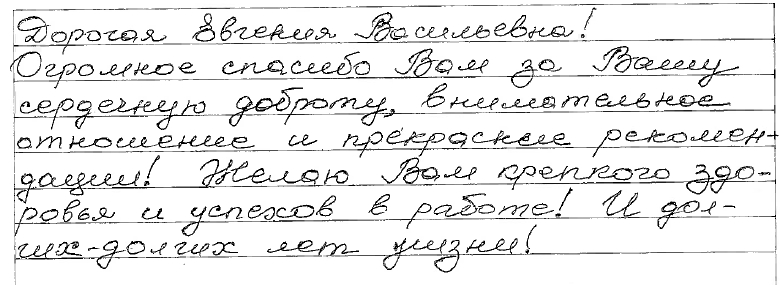 Дорогая Евгения Васильевна!
Огромное спасибо Вам за Вашу
сердечную доброту, внимательное
отношение и прекрасные рекомен-
дации! Желаю Вам крепкого здо-
ровья и успехов в работе! И дол-
гих-долгих лет жизни!